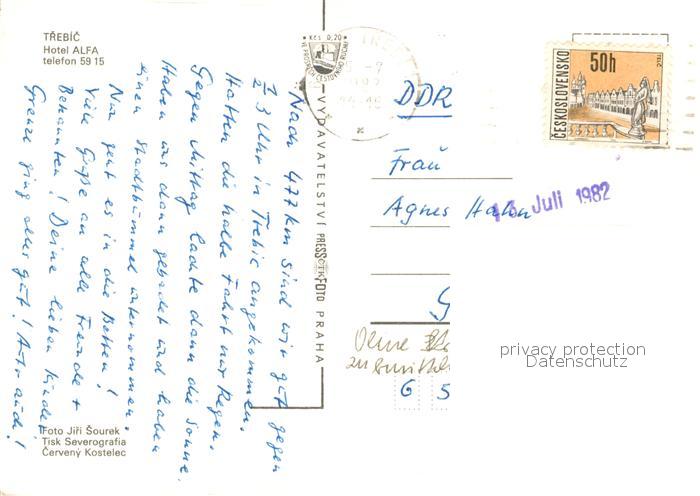 TŘEBÍČ
Hotel ALFA
telefon 59 15
Nach 477 km sind wir gut gegen
½ 3 Uhr in Trebic angekommen.
Hatten die halbe Fahrt nur Regen.
Gegen Mittag lachte dann die Sonne.
Haben uns dann gebadet und haben
einen Stadtbummel unternommen.
Nun geht es in die Betten!
Viele Grüße an alle Freunde +
Bekannten! Deine lieben Kinder
Grenze ging alles gut!
Foto Jiří Šourek
Tisk Severografia
Červený Kostelec
Kčs 0,20
VYDAVATELSTVÍ PRESSFOTO PRAHA
ČESKOSLOVENSKO
50h
TELČ
DDR
Frau
Agnes Hahn
Juli 1982
G
Ohne
zu
6 5
privacy protection
Datenschutz